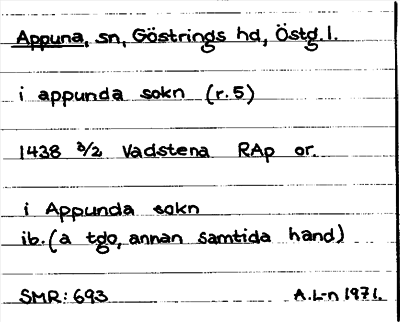 Appuna, sn, Göstrings hd, Östg. l.
i appunda sokn (r. 5)
1438 3/2 Vadstena RAp or.
i Appunda sokn
ib. (a tgo, annan samtida hand)
SMR: 693 A.L-n 1971.